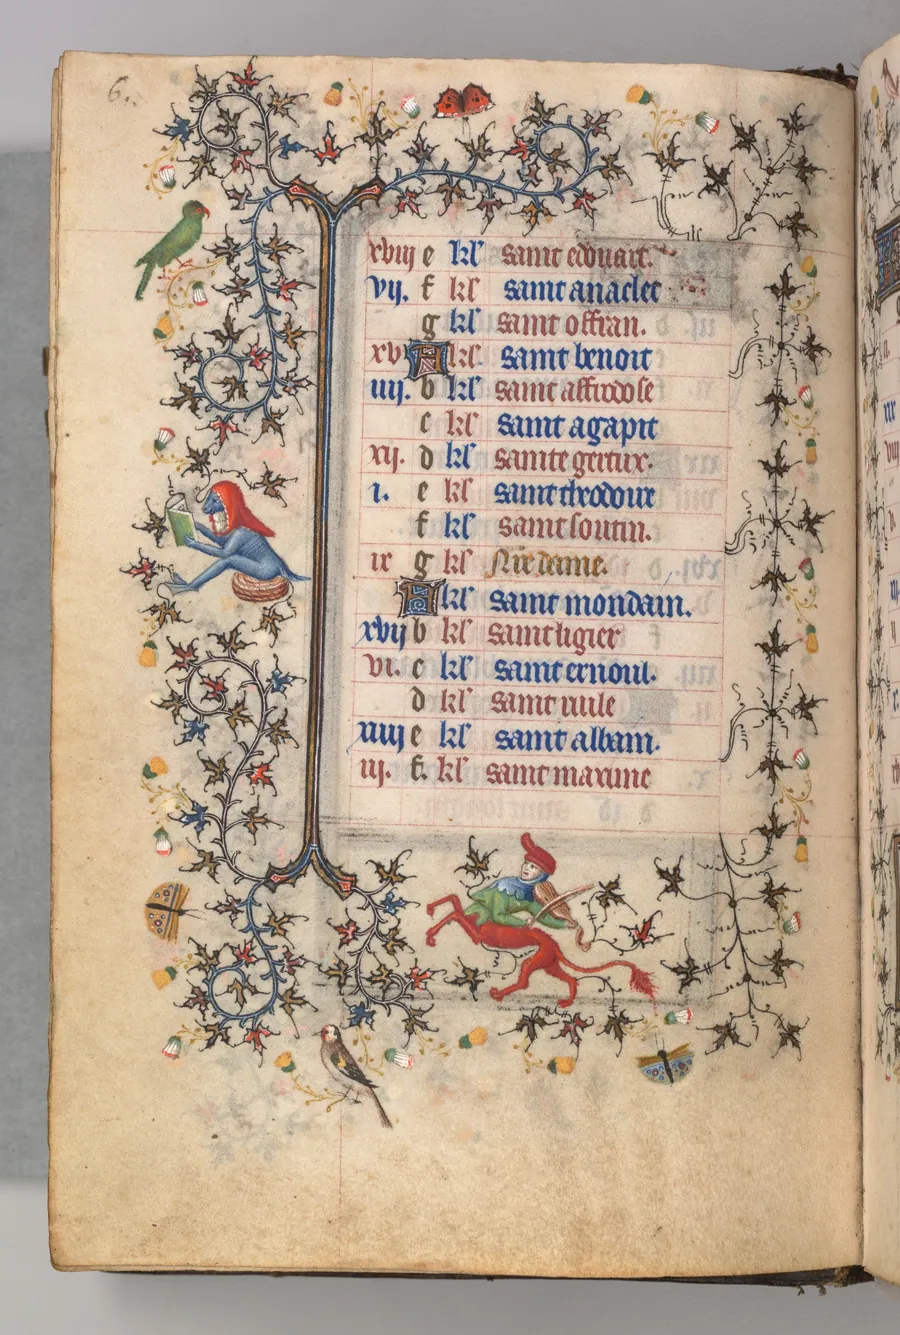 6
xviij e kl' saint edouart.
vij. f kl' saint anaclet
g kl' saint offran.
xv A kl' saint benoit
iiij. b kl' saint affrodose
c kl' saint agapit
xij. d kl' sainte gertrux.
i. e kl' saint theodoire
f kl' saint soutin.
ix g kl' Nre dame.
A kl' saint mondain.
xvij b kl' saint ligier
vi. c kl' saint ernoul.
d kl' saint rule
xiiij e kl' saint albain.
iij. f. kl' saint maxime